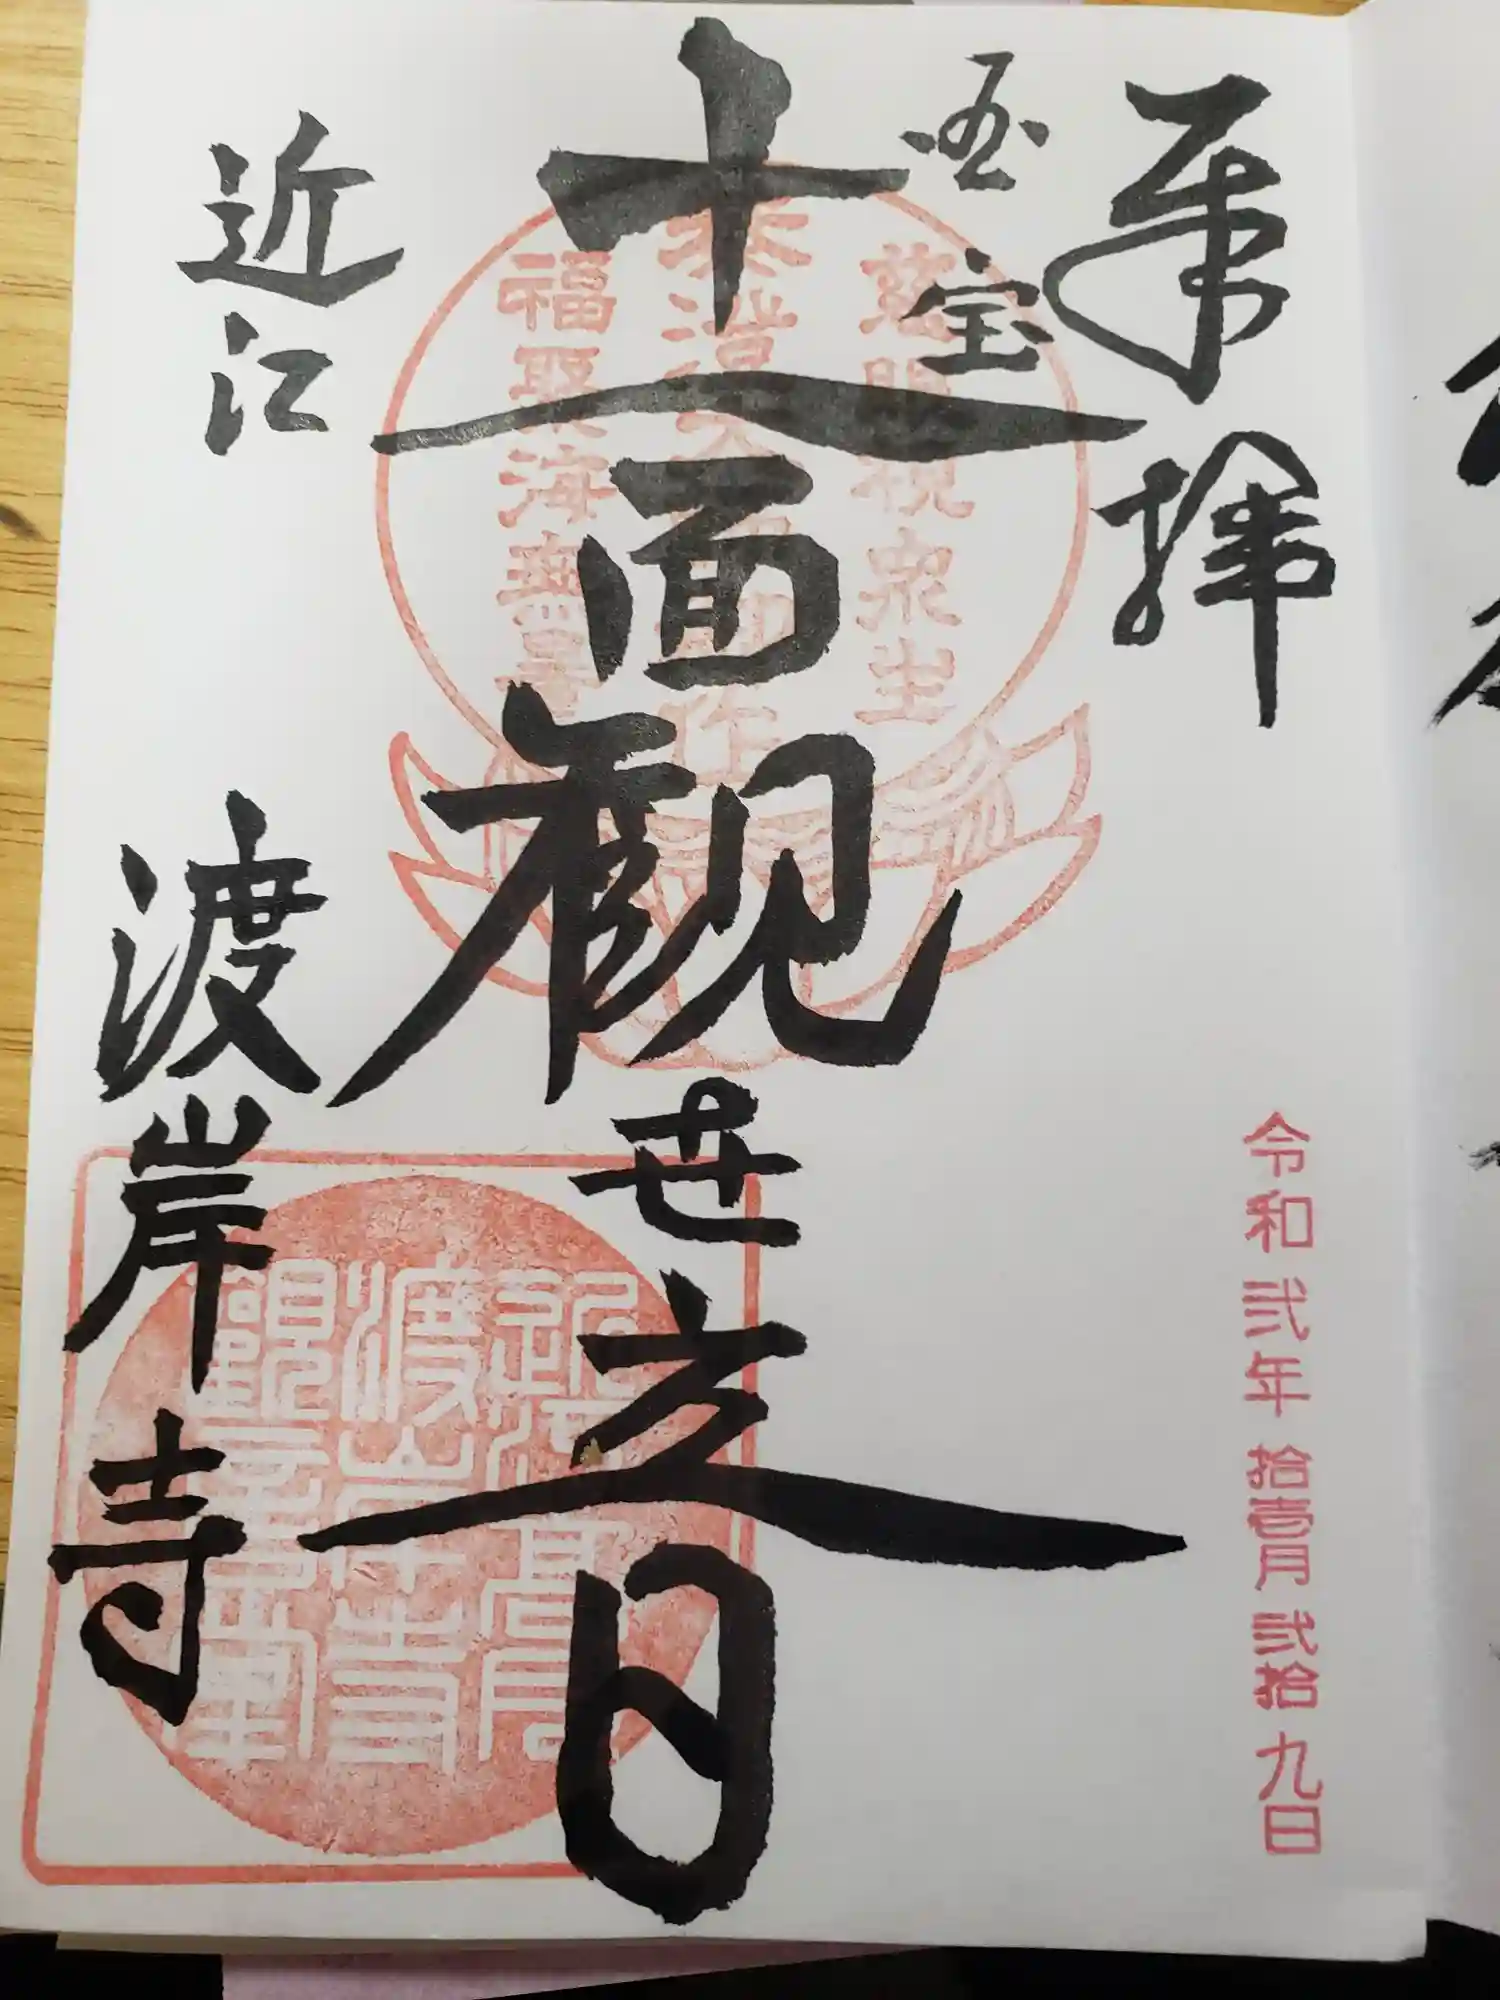 奉拝
令和弐年拾壹月弐拾九日
国宝
十一面観世音
近江
渡岸寺
慈眼視衆生
福聚海無量